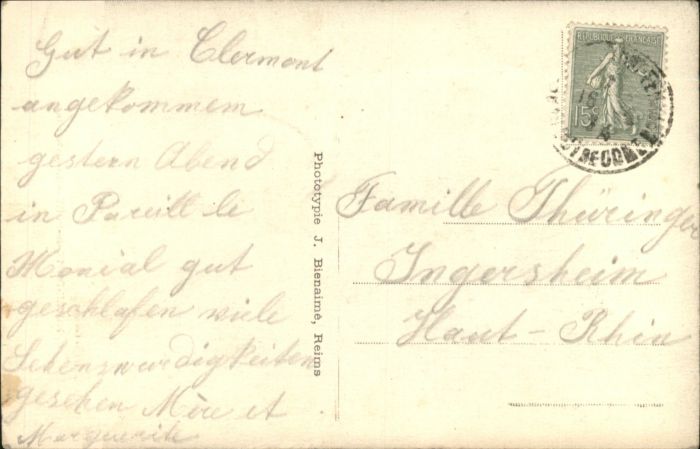 Gut in Clermont
angekommem
gestern Abend
in Pareill le
Monial gut
geschlafen viele
Sehenswurdigkeiten
gesehen Mère et
Marguerite
Phototypie J. Bienaimé, Reims
REPUBLIQUE FRANÇAISE
15c
Famille Thüringer
Ingersheim
Haut-Rhin